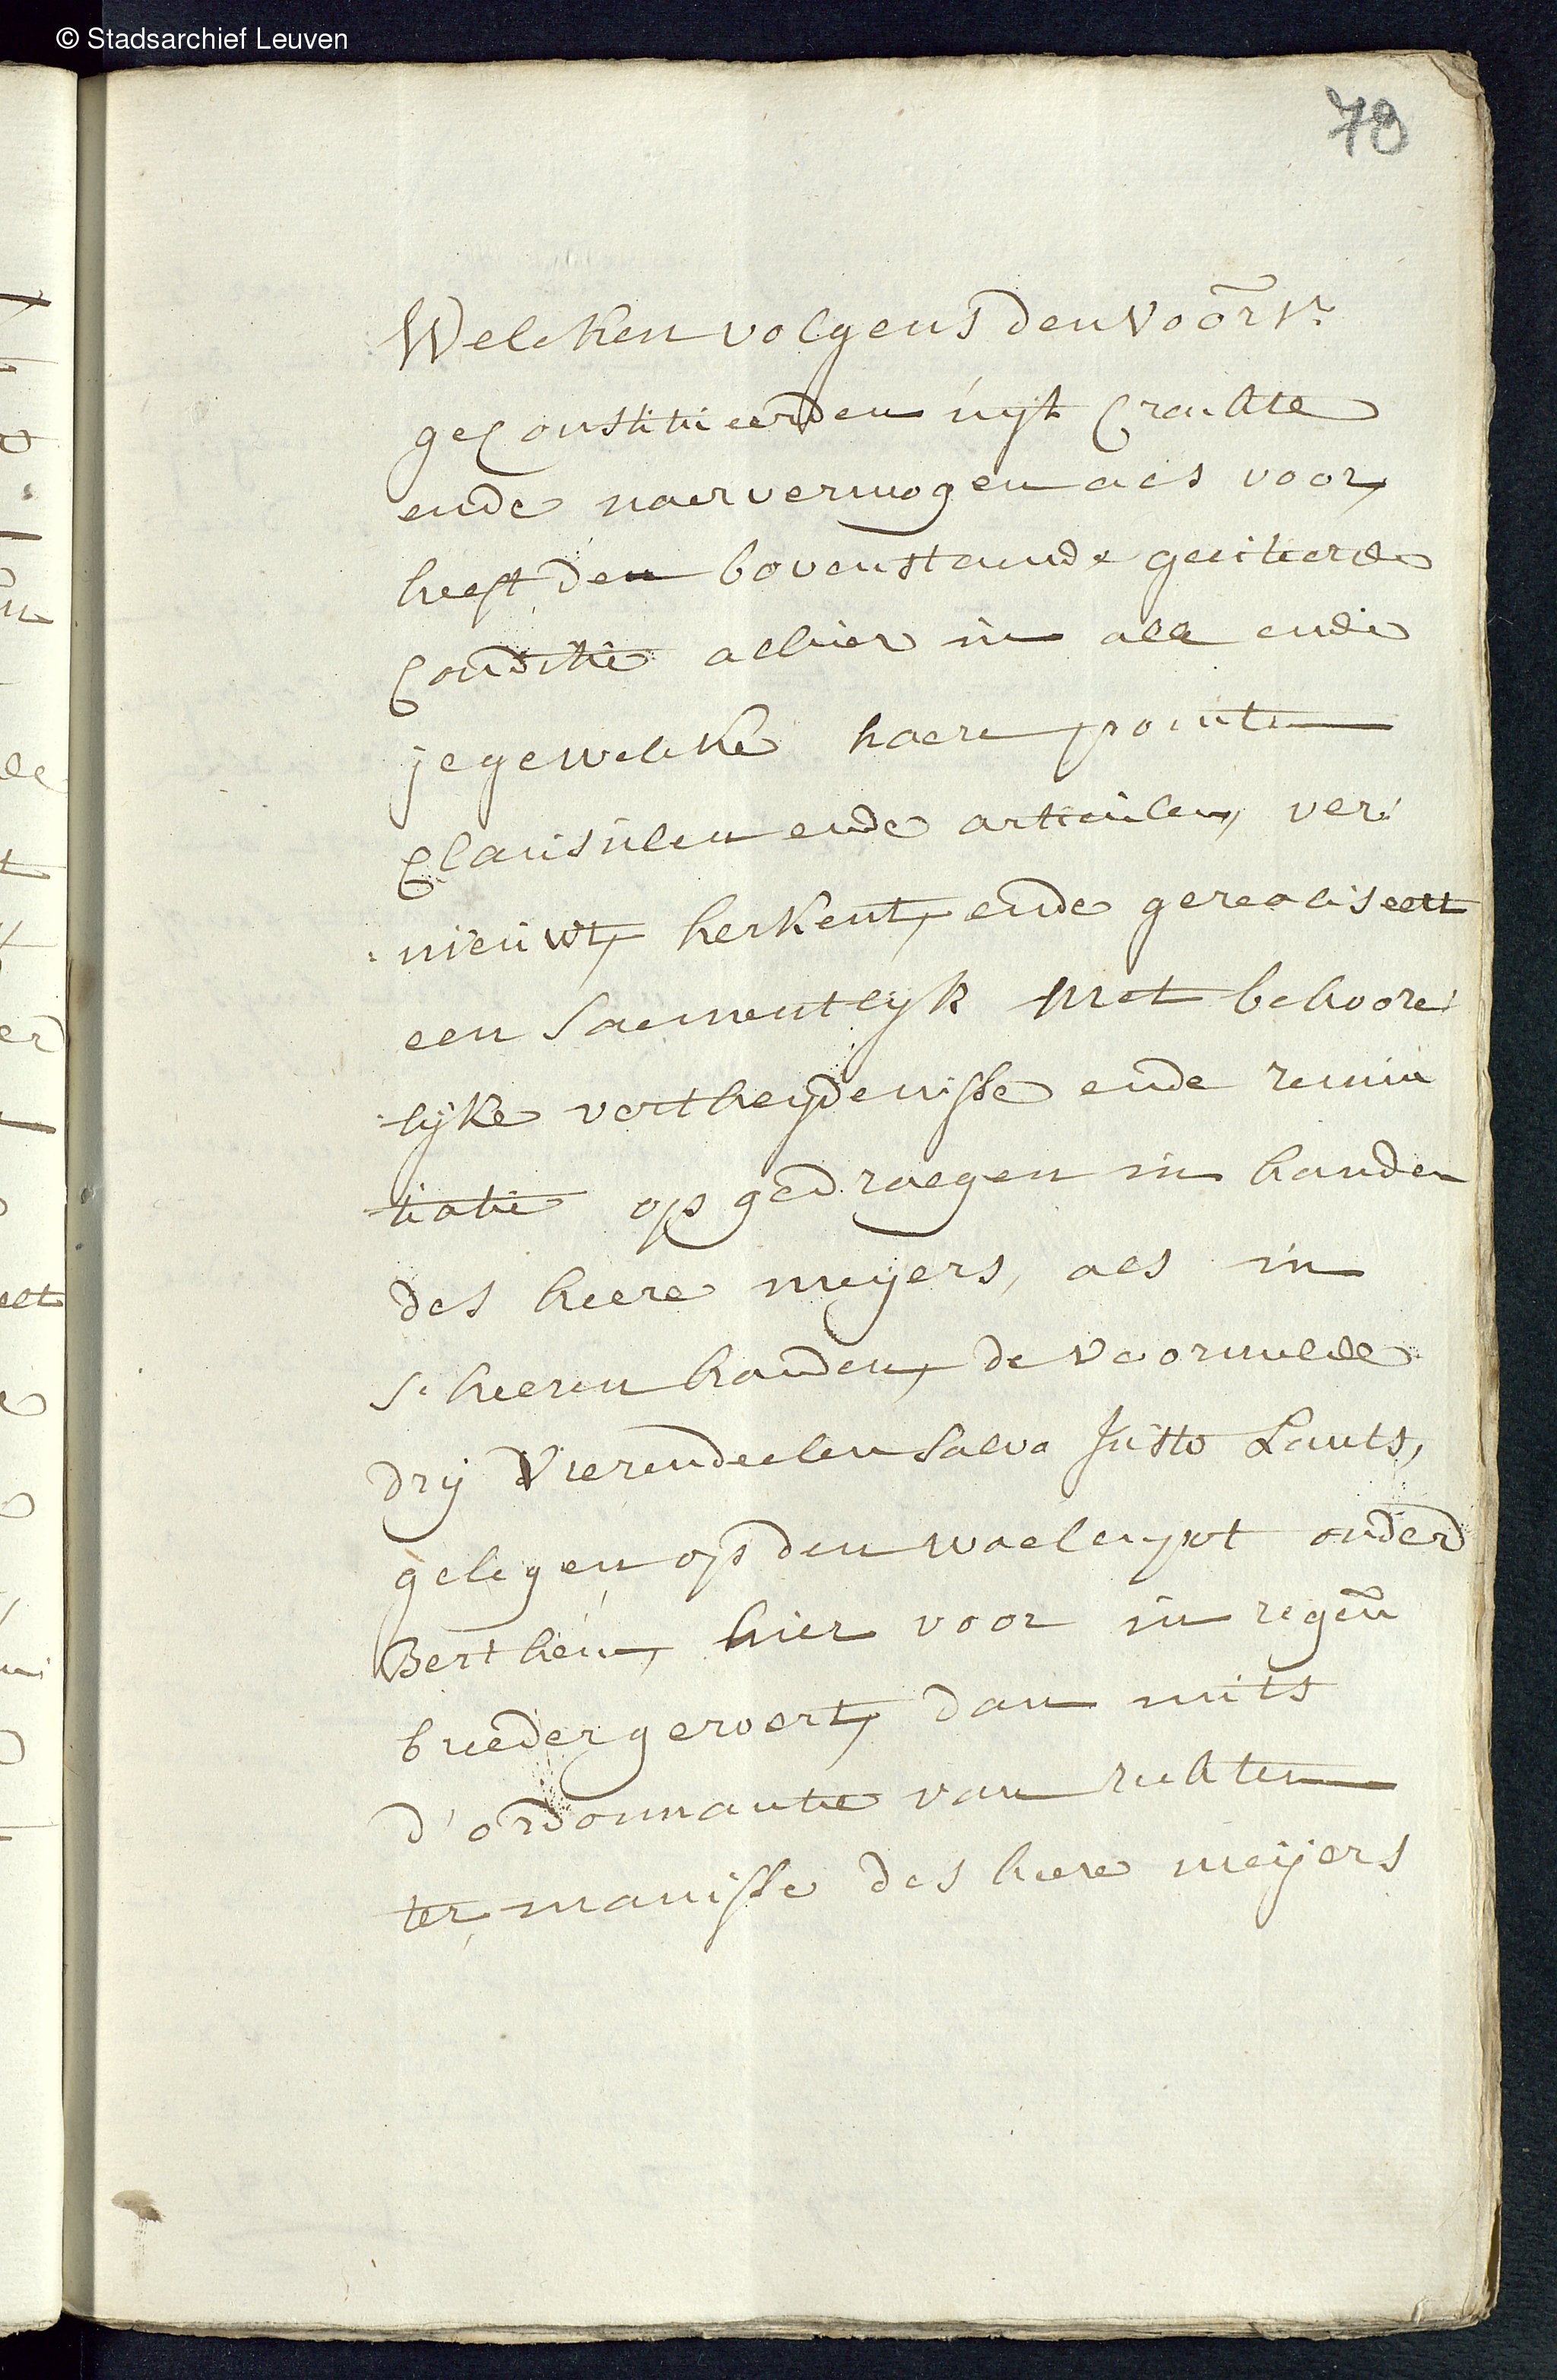 © Stadsarchief Leuven
78
Welcken volgens den voors:
geconstitueerden uijt crachte
ende naer vermogen als voor,
heeft den bovenstaende geciteerde
conditie alhier in alle ende
jegewelcke haere pointen
clausulen ende articulen, ver:
:nieuwt, herkent, ende gerealiseert
een saementlyk met behoore:
:lijke vertheijdenisse ende renun
tiatie opgedraegen in handen
des heere meijers, als in
s:heeren handen, de voormelde
drij vierendeelen salvo justo Lants,
gelegen op den waelenpot onder
Berthem, hier voor in regen:
breeder geroert, dan mits
d'ordonnantie van rechten
ter manisse des heere meijers